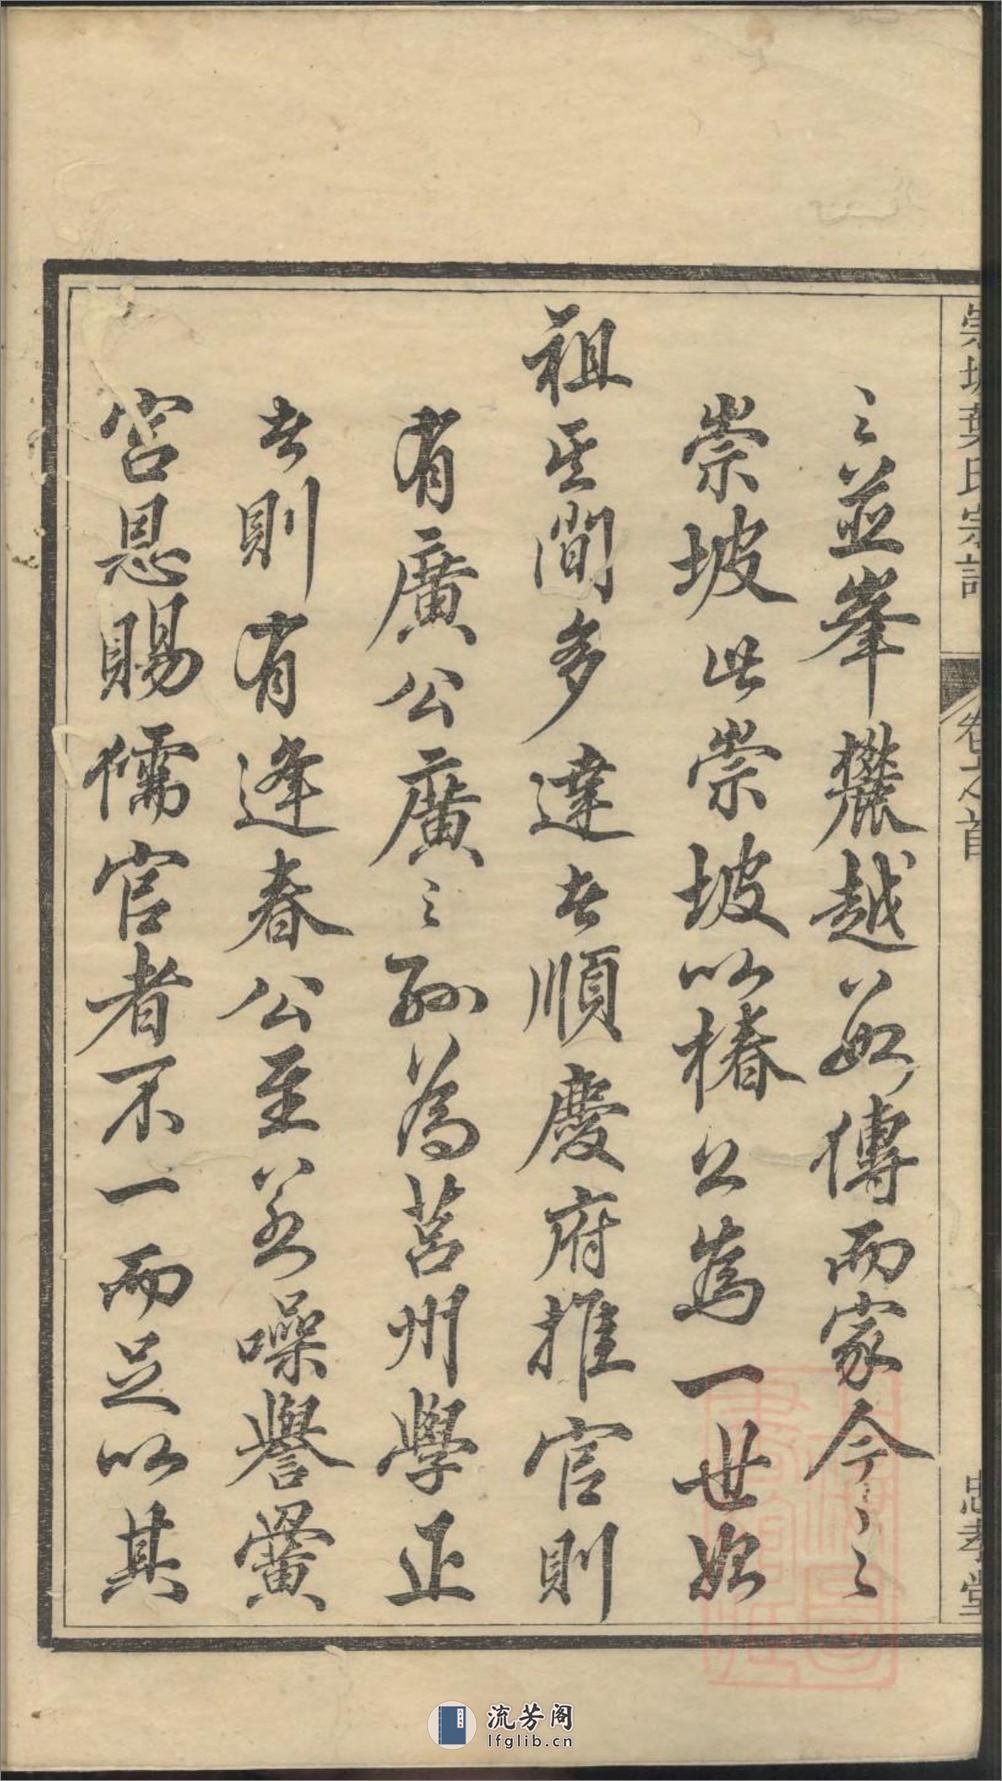 之並峯櫳越數傳而家今之
崇坡此崇坡以椿公為一世始
祖其間多達者順慶府推官則
有廣公廣之孫為莒州學正
者則有逢春公至若噪譽黌
宮恩賜儒官者不一而足以其
崇坡葉氏宗譜
卷之首
忠孝堂
流芳阁
lfglib.cn